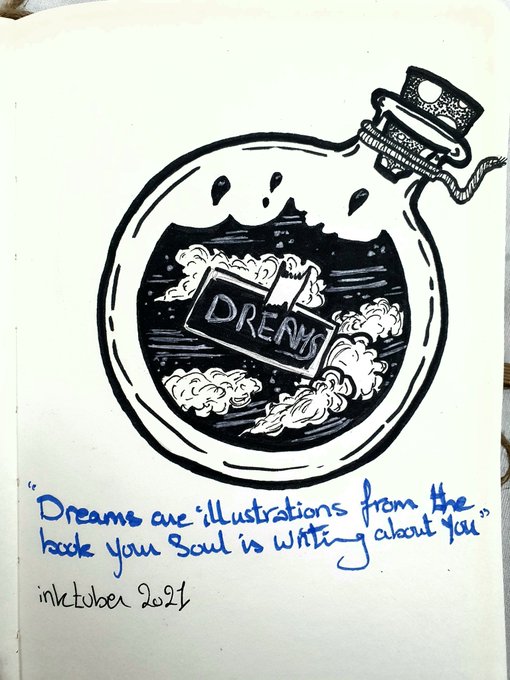 DREAMS
"Dreams are illustrations from the
book your Soul is writing about You"
inktober 2021